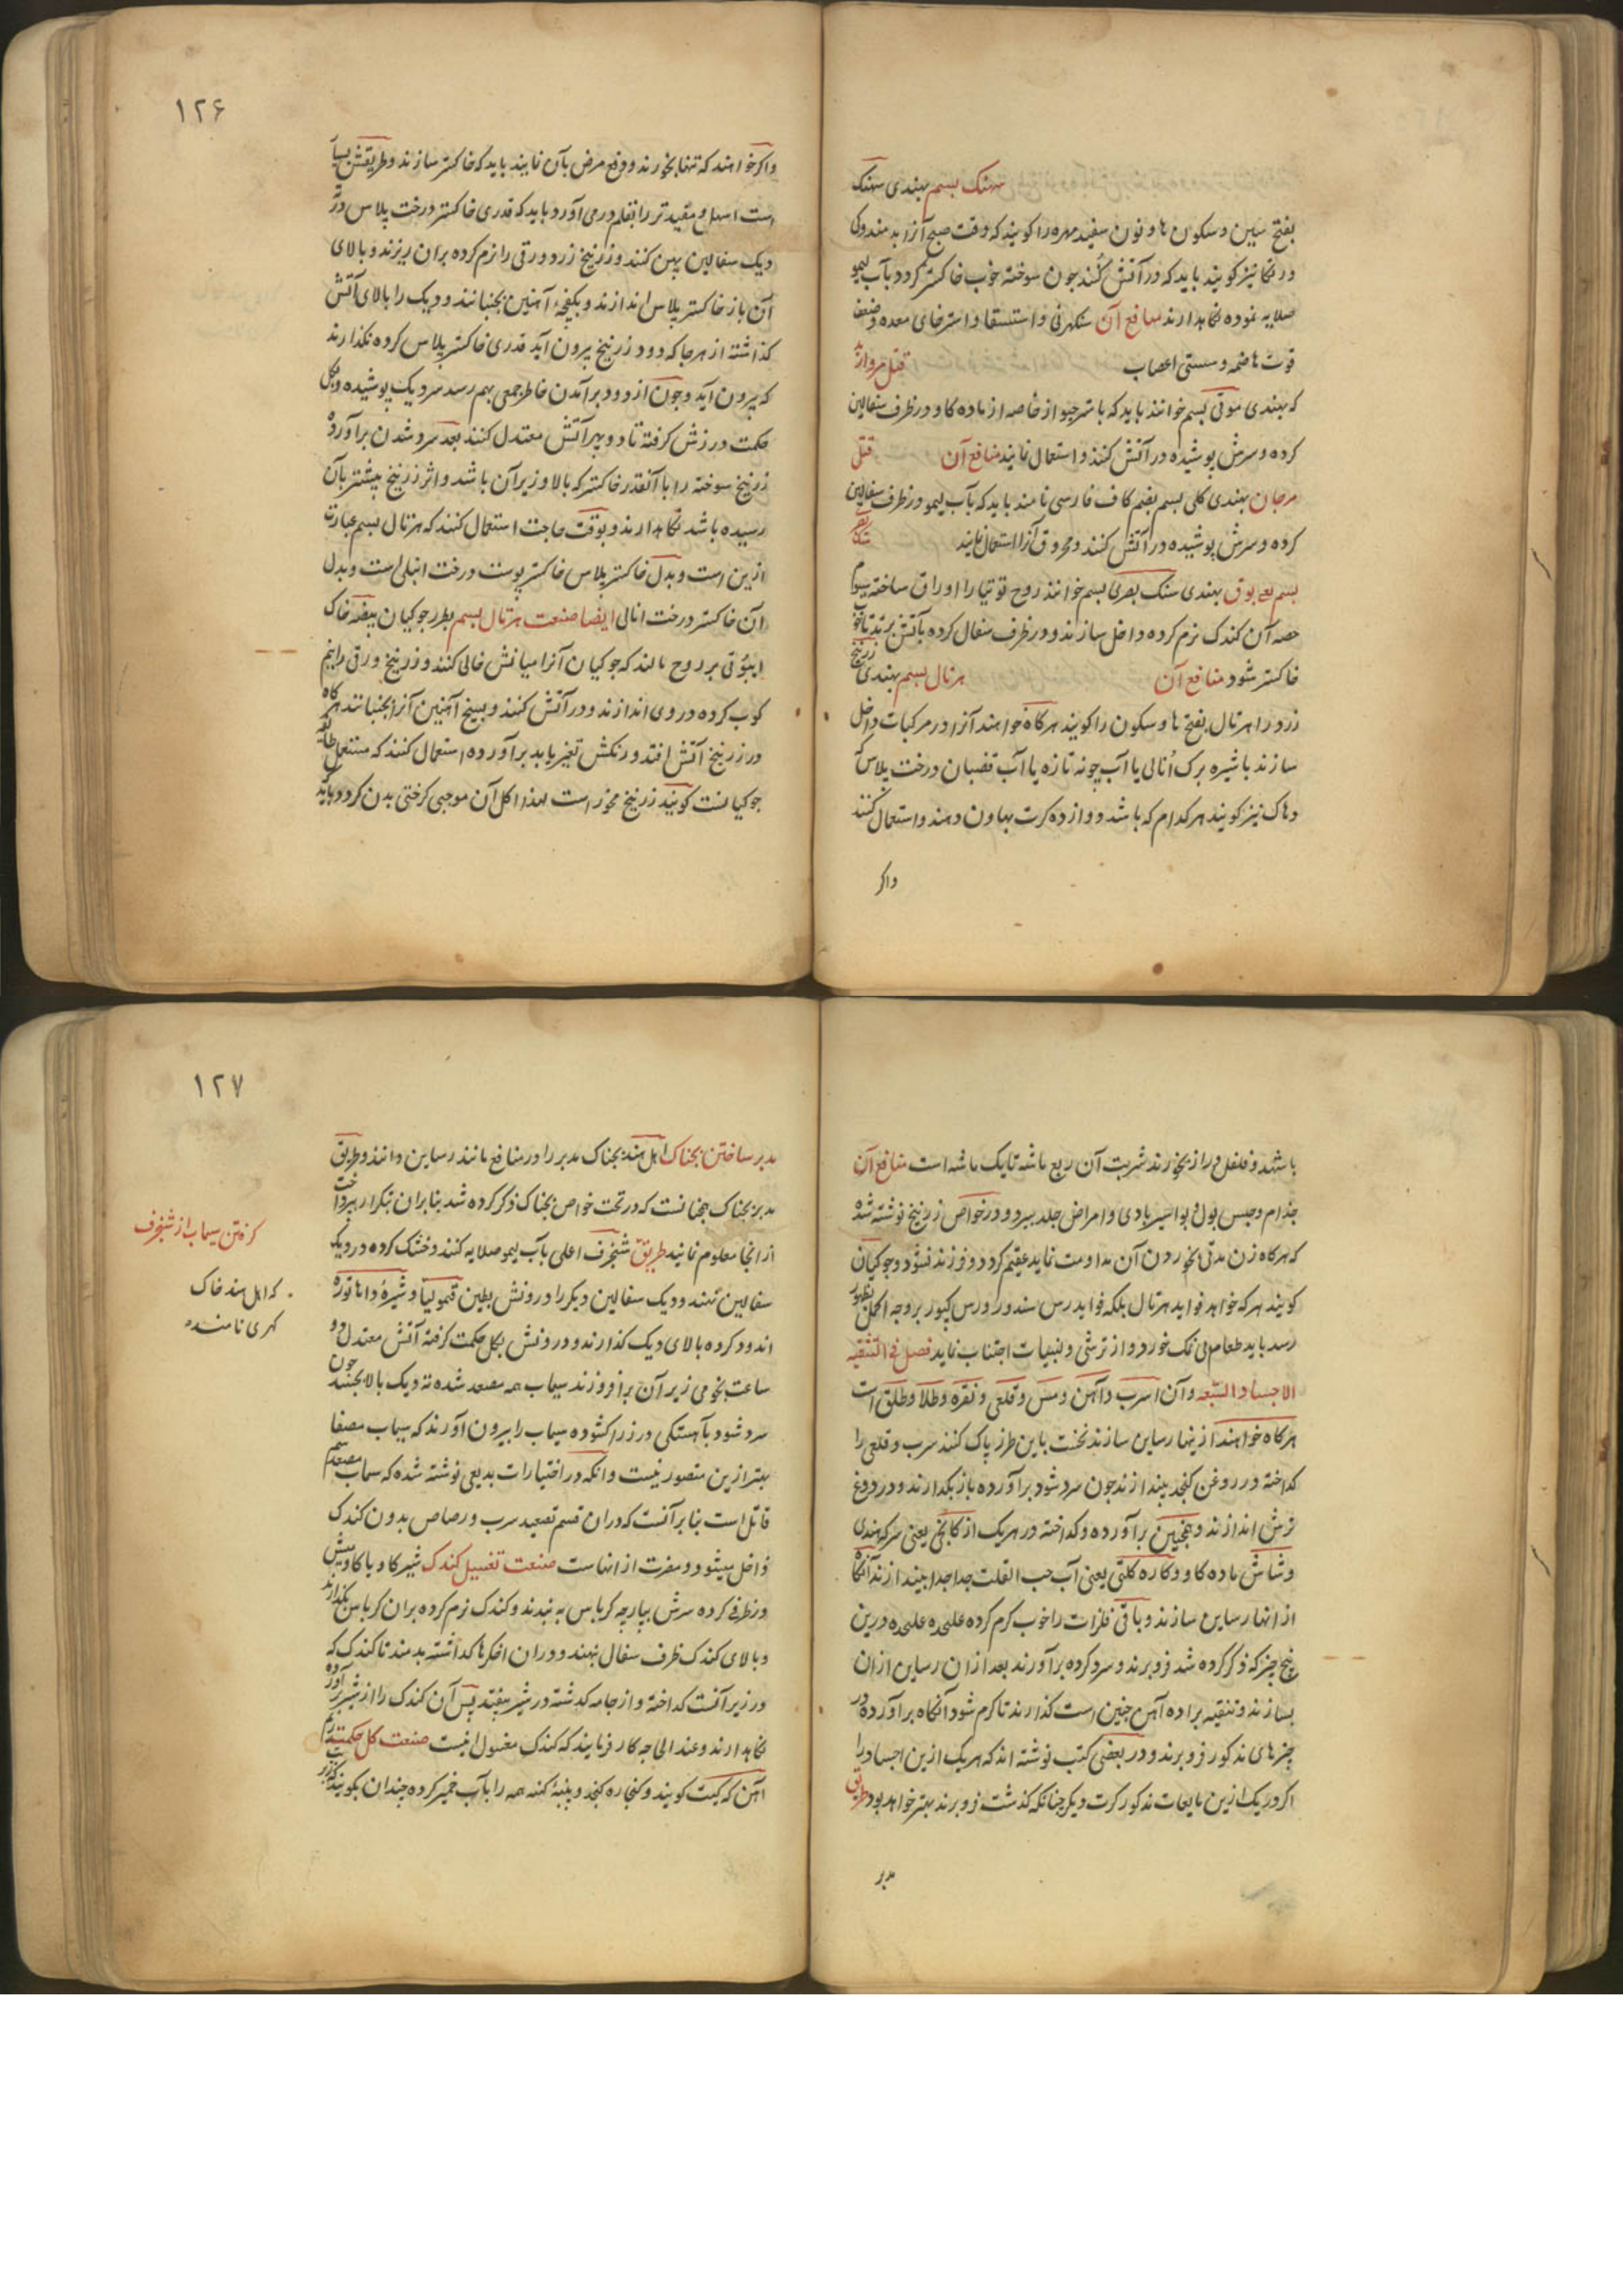 سهنک بسم بهندی سهنک
بفتح سین و سکون ها و نون سفید مهره را کویند که وقت صبح آنرا بدمند و
درنکا نیز کویند باید که در آتش کنند جون سوخته خوب خاکستر کردد بآب لیمو
صلایه نموده نکاهدارند منافع آن سنکرنی و استسقا و استرخای معده و ضعف
قوت هاضمه و سستی اعصاب قتل مروارید
که بهندی موتی بسم خوانند باید که با شیر خاصه از ماده کاو در ظرف سفالین
کرده و سرش پوشیده در آتش کنند و استعمال نمایند منافع آن قتل
مرجان بهندی کلی بسم بضم کاف فارسی نامند باید که بآب لیمو در ظرف سفالین
کرده و سرش پوشیده در آتش کنند و محروق آنرا استعمال نمایند
بسم بهندی سنک بصری بسم خوانند روح توتیا را اوراق ساخته سیوم
حصه آن کندک نرم کرده داخل سازند و در ظرف سفال کرده بآتش برند تا خوب
خاکستر شود منافع آن هرتال بسم بهندی زرنیخ
زرد را هرتال بفتح ها و سکون را کویند هرکاه خواهند آنرا در مرکبات داخل
سازند با شیره برک انالی یا آب چونه تازه یا آب قضبان درخت پلاس که
دهاک نیز کویند هر کدام که باشد دوازده کرت بهاون دهند و استعمال کنند
واکر
۱۲۶
واکر خواهند که تنها بخورند و دفع مرض بآن نمایند باید که خاکستر سازند و طریقش بسیار
است اسهل و مفیدتر را بقلم درمی آورد باید که قدری خاکستر درخت پلاس در ته
دیک سفالین پهن کنند و زرنیخ زرد ورقی را نرم کرده بران ریزند و بالای
آن باز خاکستر پلاس اندازند و بکفچهٔ آهنین بجنبانند و دیک را بالای آتش
کذاشته از هرجا که دود زرنیخ بیرون آید قدری خاکستر پلاس کرده نکذارند
که بیرون آید و جون از دود برآمدن خاطرجمعی بهم رسد سر دیک پوشیده و بکل
حکمت درزش کرفته تا دو پهر آتش معتدل کنند بعد سرد شدن برآورده
زرنیخ سوخته را با آنقدر خاکستر که بالا و زیر آن باشد و اثر زرنیخ بیشتر بآن
رسیده باشد نکاهدارند و بوقت حاجت استعمال کنند که هرتال بسم عبارت
ازین است و بدل خاکستر پلاس خاکستر پوست درخت انبلی است و بدل
آن خاکستر درخت انالی ایضا صنعت هرتال بسم بطرز جوکیان بیضه خاک
برروح مالند که جوکیان آنرا میانش خالی کنند و زرنیخ ورقی را نیم
کوب کرده در وی اندازند و در آتش کنند و بسیخ آهنین آنرا بجنبانند هرکاه
در زرنیخ آتش افتد و رنکش تغیر یابد برآورده استعمال کنند که مستعمل طایفه
جوکیانست کویند زرنیخ مخدر است لهذا اکل آن موجب کرختی بدن کردد باید
باشهد و فلفل دراز بخورند شربت آن ربع ماشه تا یک ماشه است منافع آن
جذام و حبس بول و بواسیر بادی و امراض جلد ببرد و در خواص زرنیخ نوشته شده
که هرکاه زن مدتی بخوردن آن مداومت نماید عقیم کردد و فرزند نشود و جوکیان
کویند هرکه خواهد فواید هرتال بلکه فواید رس سندور و رس کپور بروجه اکمل بظهور
رسد باید طعام بی نمک خورد و از ترشی و لبنیات اجتناب نماید فصل فی التنقیه
الاجساد السبعه و آن اسرب و آهن و مس و قلعی و نقره و طلا و طلق است
هرکاه خواهند ازینها رساین سازند نخست باین طرز پاک کنند سرب و قلعی را
کداخته در روغن کنجد بیندازند جون سرد شود برآورده باز بکدازند و در دوغ
ترش اندازند و همچنین برآورده و کداخته در هریک از کانجی یعنی سرکه هندی
و شاش ماده کاو و کاره کلتی یعنی آب حب القلت جدا جدا بیندازند آنکاه
از انها رساین سازند و باقی فلزات را خوب کرم کرده علیحده علیحده درین
پنج چیز که ذکر کرده شد فروبرند و سرد کرده برآورند بعد ازان رساین ازان
بسازند و تنقیه براده آهن چنین است کذارند تا کرم شود آنکاه برآورده در
چیزهای مذکور فروبرند و در بعضی کتب نوشته اند که هریک ازین اجساد را
اکر در یک ازین مایعات مذکور کرت دیکر چنانکه کذشت فروبرند بهتر خواهد بود طریق
مدبر
۱۲۷
مدبر ساختن بجناک اهل هند بجناک مدبر را در منافع مانند رساین دانند و طریق
مدبر بجناک همانست که در تحت خواص بجناک ذکر کرده شد بنابران بتکرار نپرداخت
از انجا معلوم نمایند طریق شنجرف اعلی بآب لیمو صلایه کنند و خشک کرده در دیک
سفالین نهند و دیک سفالین دیکر را درونش بطین قیمولیا و شیره داهاتوره
اندود کرده بالای دیک کذارند و درونش بکل حکمت کرفته آتش معتدل دو
ساعت نجومی زیر آن برافروزند سیماب همه مصعد شده ته دیک بالا بجسبد جون
سرد شود بآهستکی درز را کشوده سیماب را بیرون آورند که سیماب مصفا
بهتر ازین متصور نیست و انکه در اختیارات بدیعی نوشته شده که سیماب مصعد سم
قاتل است بنابر آنست که دران قسم تصعید سرب و رصاص بدون کندک
داخل میشود و مضرت از انهاست صنعت تغسیل کندک شیر کاو یا کاومیش
در ظرفی کرده سرش بپارچه کرباس به بندند و کندک نرم کرده بران کرباس بکذارند
و بالای کندک ظرف سفال بنهند و دران اخکرها کذاشته بدمند تا کندک که
در زیر آنست کداخته و از جامه کذشته در شیر بیفتد پس آن کندک را از شیر برآورده
نکاهدارند و عند الحاجه کار فرمایند که کندک مغسول اینست صنعت کل حکمت
آهن که کیت کویند و کنجاره کنجد و پنبهٔ کهنه همه را بآب خمیر کرده چندان بکوبند
کرفتن سیماب از شنجرف
که اهل هند خاک
کهری نامند